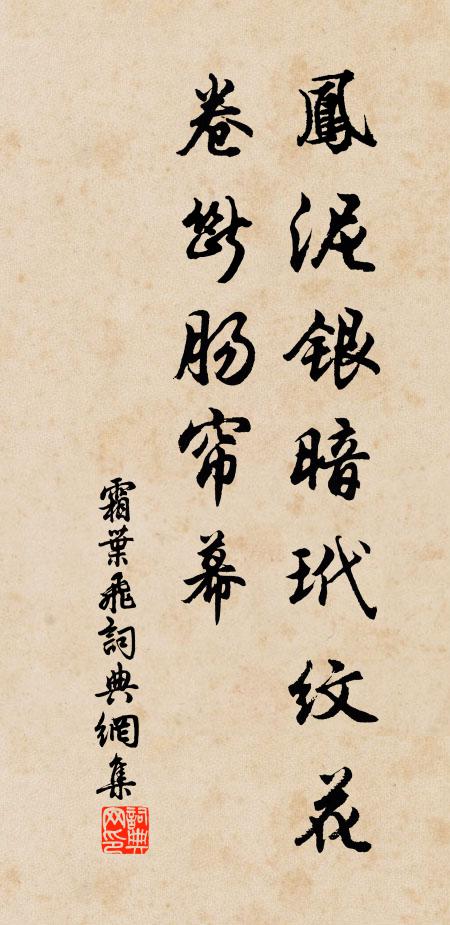 鳳泥銀暗玳纹花
卷断肠帘幕
霜葉飛詞典網集
詞典网印